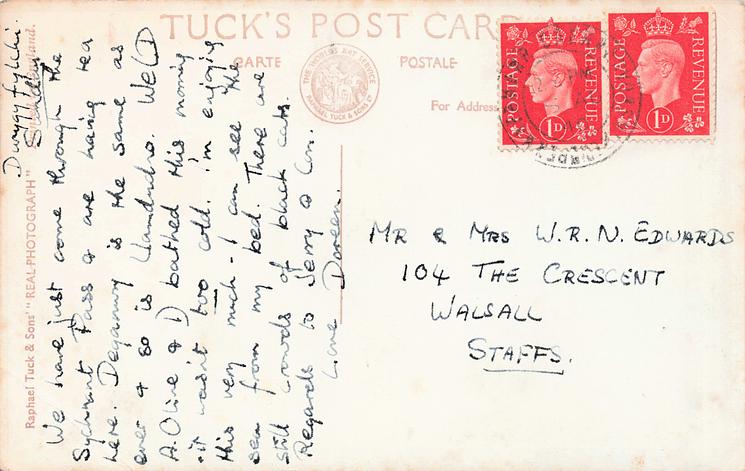 TUCK'S POST CARD
CARTE POSTALE
For Address
Raphael Tuck & Sons' "REAL-PHOTOGRAPH"
Sunday
We have just come through the
Sychnant Pass & are having tea
here. Deganwy is the same as
ever & so is Llandudno. We (D
A. Olive & D) bathed this morning
- it wasn't too cold. I'm enjoying
this very much - I can see the
sea from my bed. There are
still crowds of black cats.
Regards to Jerry & Con.
Love Doreen.
MR & MRS W.R.N. EDWARDS
104 THE CRESCENT
WALSALL
STAFFS.
POSTAGE REVENUE
1D
POSTAGE REVENUE
1D